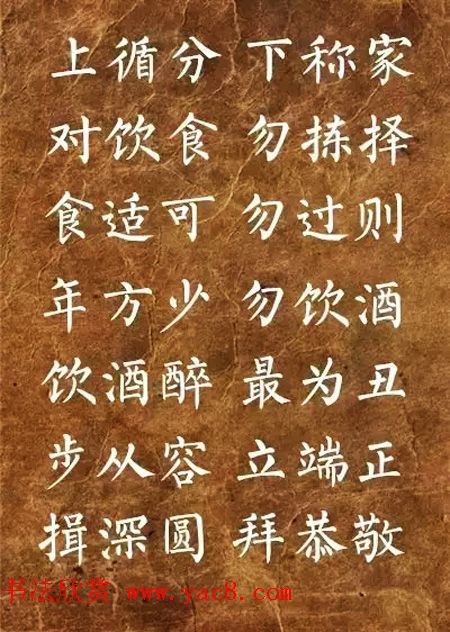 上循分 下称家
对饮食 勿拣择
食适可 勿过则
年方少 勿饮酒
饮酒醉 最为丑
步从容 立端正
揖深圆 拜恭敬
书法欣赏 www.yac8.com